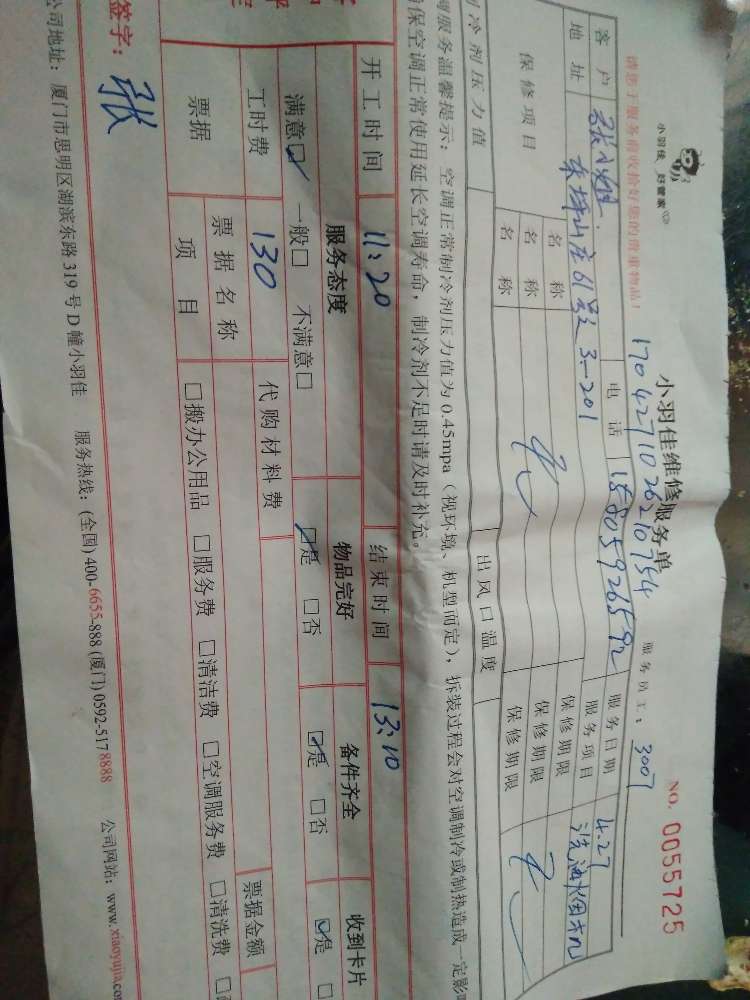 小羽佳 好管家
小羽佳维修服务单
NO. 0055725
请您于服务前收拾好您的贵重物品！
1704271026210754
服务员工：3007
客户 张小姐 电话 15805926592 服务日期 4.27
地址 东坪山庄61号 3-201 服务项目 洗油烟机
保修项目 名称 保修期限
名称 保修期限
名称 保修期限
制冷剂压力值 出风口温度
调服务温馨提示：空调正常制冷剂压力值为0.45mpa（视环境、机型而定），拆装过程会对空调制冷或制热造成一定影
保空调正常使用延长空调寿命，制冷剂不足时请及时补充。
开工时间 11:20 结束时间 13:10
服务态度 物品完好 备件齐全 收到卡片
满意☑ 一般□ 不满意□ ☑是 □否 ☑是 □否 ☑是 □
工时费 130 代购材料费
票据 票据名称 票据金额
项目 □搬办公用品 □服务费 □清洁费 □空调服务费 □清洗费 □
签字： 张
公司地址：厦门市思明区湖滨东路319号D幢小羽佳 服务热线：(全国)400-6655-888 (厦门)0592-5178888 公司网站：www.xiaoyujia.com